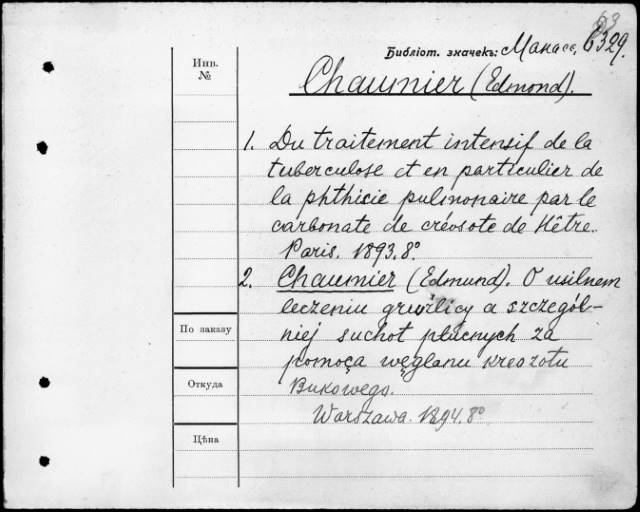 63
Библіот. значекъ: Манасс. 6329.
Инв.
№
Chaumier (Edmond).
1. Du traitement intensif de la
tuberculose et en particulier de
la phthisie pulmonaire par le
carbonate de créosote de Hêtre.
Paris. 1893. 8°
2. Chaumier (Edmund). O usilnem
leczeniu gruźlicy a szczegól-
niej suchot płucnych za
pomoça węglanu kreozotu
Bukowego.
Warszawa. 1894. 8°
По заказу
Откуда
Цѣна